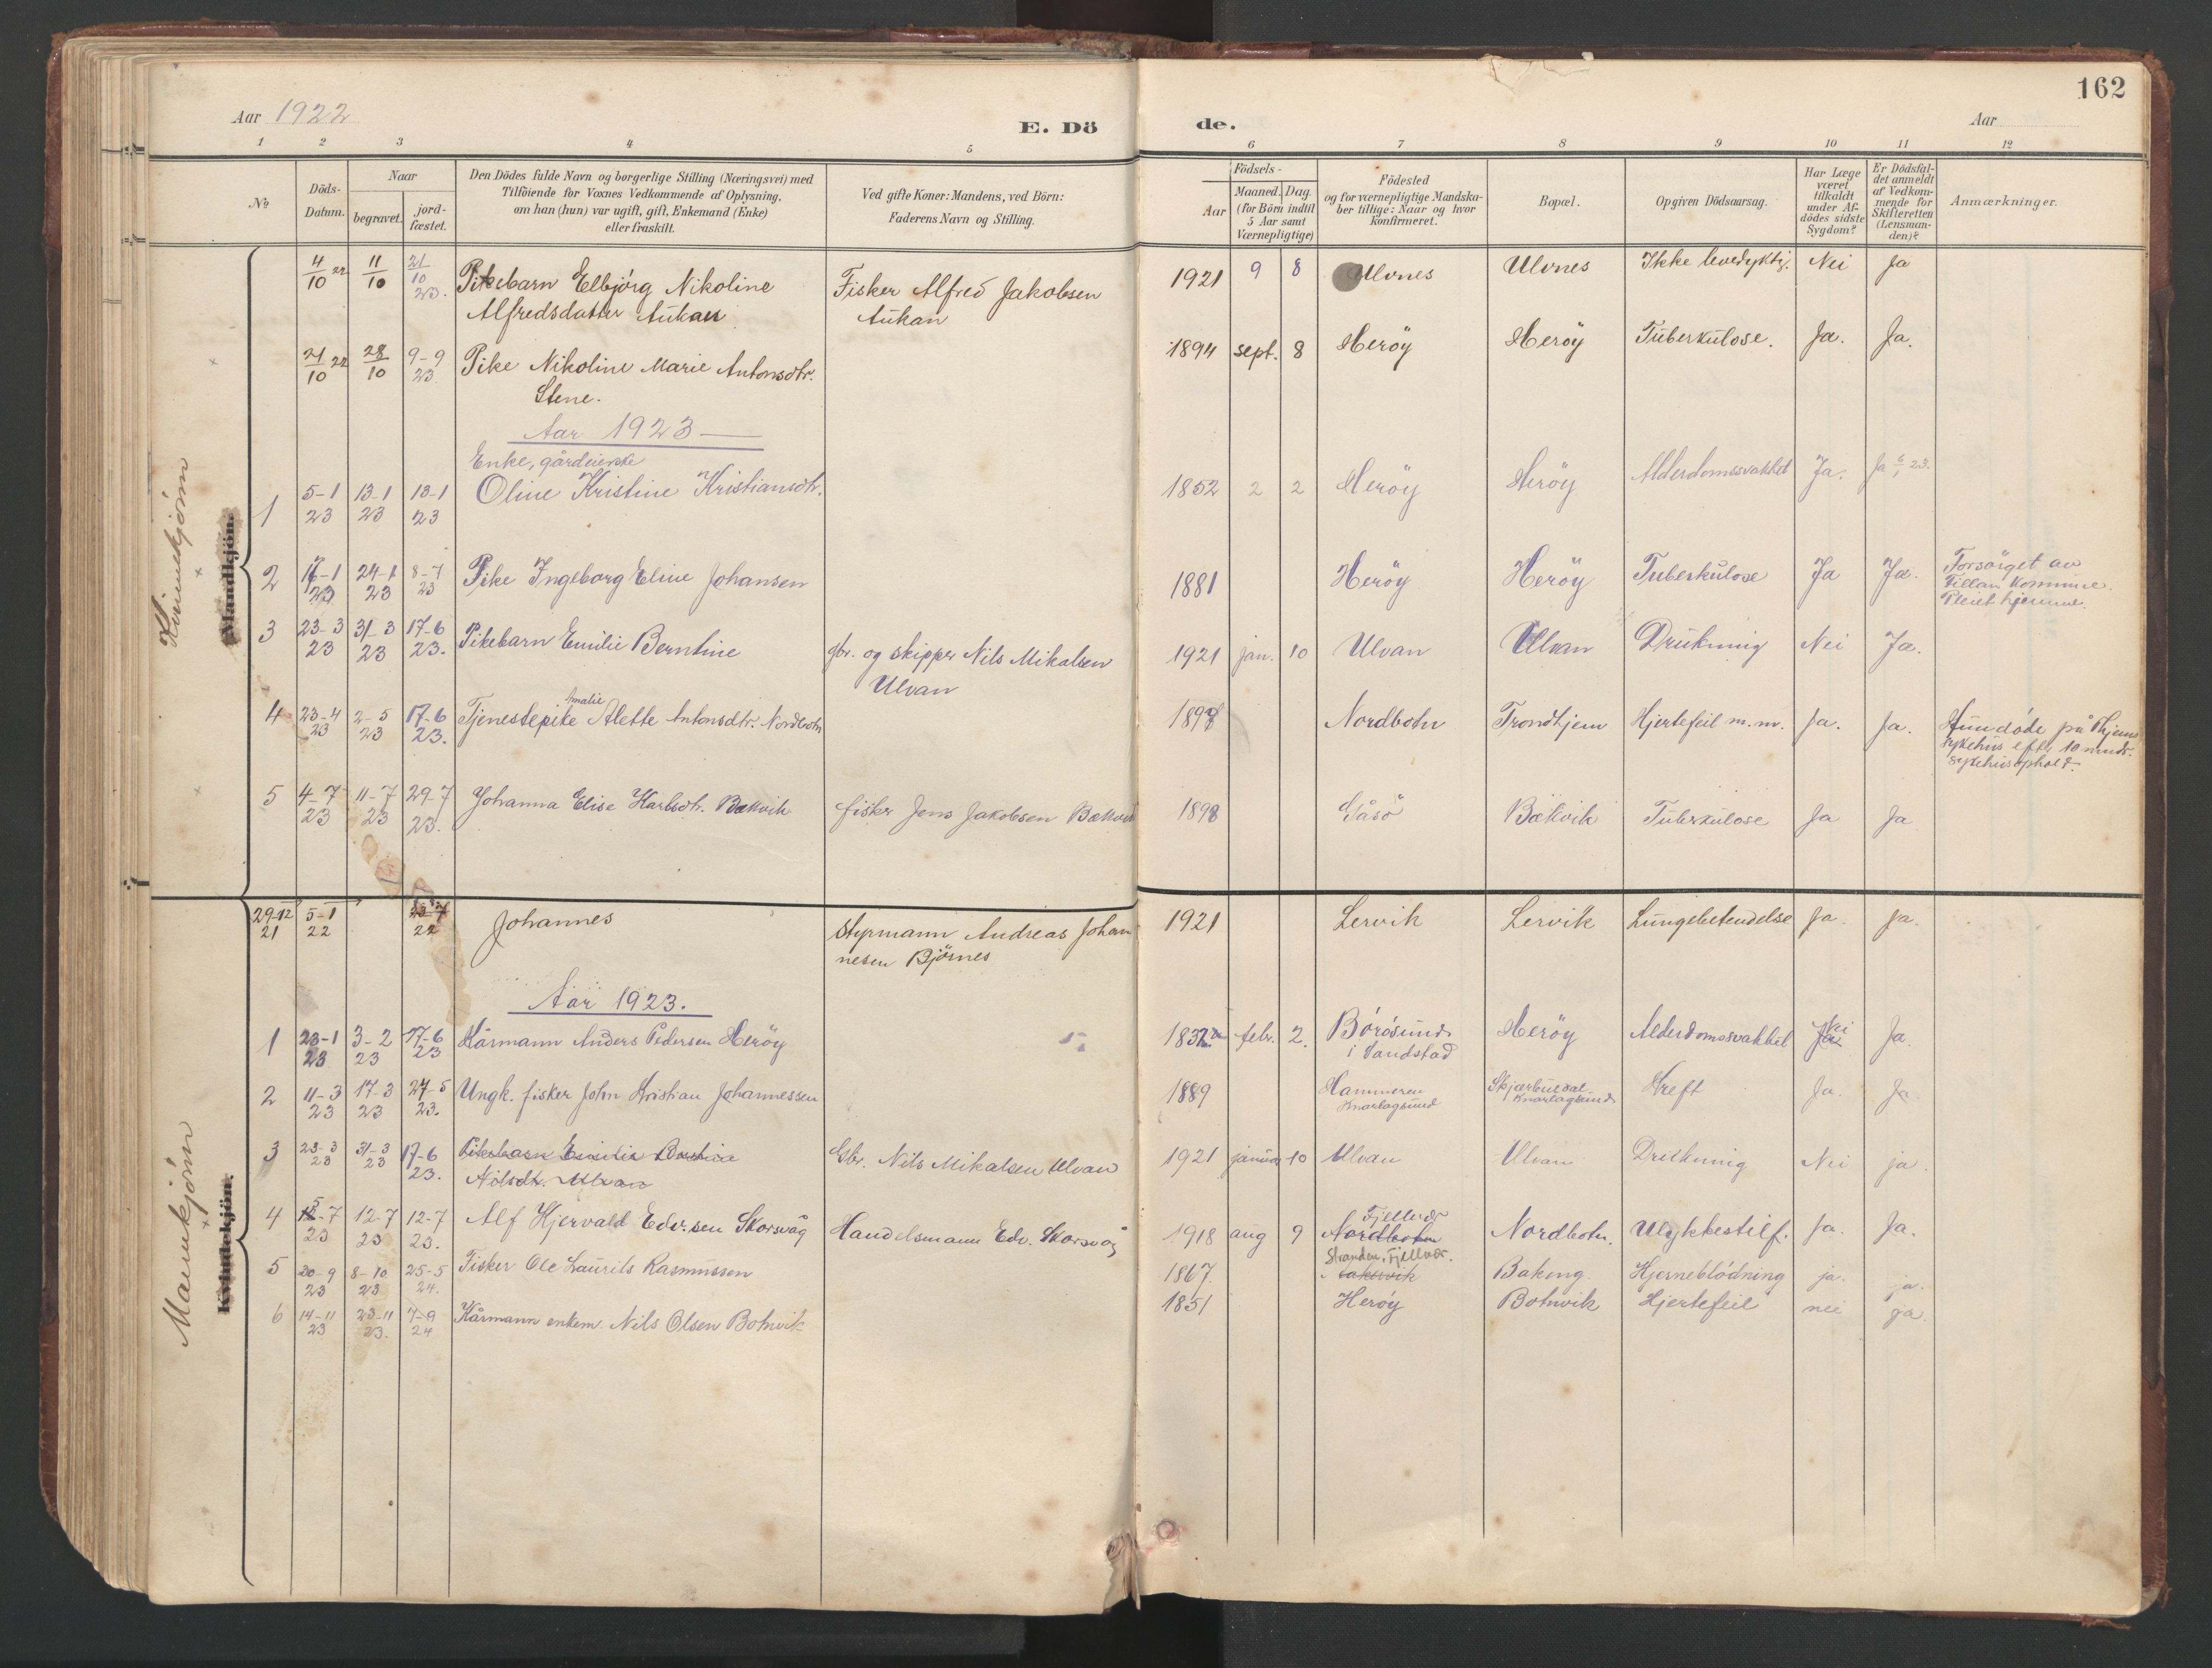 162
Aar 1922
E. Dö
de.
Aar
1 2 3 4 5 6 7 8 9 10 11 12
No
Döds-Datum.
Naar
begravet.
jord-fæstet.
Den Dödes fulde Navn og borgerlige Stilling (Næringsvei) med
Tilföiende for Voxnes Vedkommende af Oplysning,
om han (hun) var ugift, gift, Enkemand (Enke)
eller fraskilt.
Ved gifte Koner: Mandens, ved Börn:
Faderens Navn og Stilling.
Födsels-
Aar
Maaned. Dag.
(for Börn indtil
5 Aar samt
Værnepligtige)
Födested
og for værnepligtige Mandska-
ber tillige: Naar og hvor
konfirmeret.
Bopæl.
Opgiven Dödsaarsag.
Har Læge
været
tilkaldt
under Af-
dödes sidste
Sygdom?
Er Dödsfal-
det anmeldt
af Vedkom-
mende for
Skifteretten
(Lensman-
den)?
Anmærkninger.
Kvinnekjönn
Mandkjön.
4/10 22 11/10 21/10 23. Pikebarn Elbjörg Nikoline Fisker Alfred Jakobsen 1921 9 8 Ulvnes Ulvnes Ikke levedyktig. Nei Ja
Alfredsdatter Aukan Aukan
21/10 22 28/10 9-9 23 Pike Nikoline Marie Antonsdtr. 1894 sept. 8 Heröy Heröy Tuberkulose. Ja. Ja.
Stene.
Aar 1923
Enke, gårdeierske
1 5-1 23 13-1 23 13-1 23 Oline Kristine Kristiansdtr. 1852 2 2 Heröy Heröy Alderdomssvakhet Ja. Ja 6/1 23.
2 16-1 23 24-1 23 8-7 23 Pike Ingeborg Eline Johansen 1881 Heröy Heröy Tuberkulose Ja Ja. Forsörget av
Fillan Kommune.
Pleiet hjemme.
3 23-3 23 31-3 23 17-6 23. Pikebarn Emilie Berntine gbr. og skipper Nils Mikalsen 1921 jan. 10 Ulvan Ulvan Drukning Nei Ja.
Ulvan
Amalie
4 23-4 23 2-5 23 17-6 23. Tjenestepike Alette Antonsdtr. Nordbotn 1898 Nordbotn Trondhjem Hjertefeil m.m. Ja. Ja. Hun döde på Thjems
sykehus efter 10 mnds.
sykehusophold.
5 4-7 23 11-7 23 29-7 23. Johanna Elise Karlsdtr. Bækvik fisker Jens Jakobsen Bækvik 1898 Gåsö Bækvik Tuberkulose Ja Ja
Mannkjönn
Kvindekjön.
29-12 21 5-1 22 23-7 22 Johannes Styrmann Andreas Johan 1921 Lervik Lervik Lungebetendelse Ja. Ja.
nesen Björnes
Aar 1923.
1 23-1 23 3-2 23 17-6 23 Kårmann Anders Pedersen Heröy 1832 febr. 2. Börösund Heröy Alderdomssvakhet Nei Ja.
i Sandstad
2 11-3 23 17-3 23 27-5 23. Ungk. fisker John Kristian Johannessen 1889 Hammeren Kreft Ja. Ja.
Knarlagsund Knarlagsund
3 23-3 23 31-3 23 17-6 23. Pikebarn Emilie Berntine Gbr. Nils Mikalsen Ulvan 1921 januar 10 Ulvan Ulvan Drukning Nei ja.
Nilsdt. Ulvan
4 5-7 23 12-7 23 12-7 23. Alf Hjervald Edv.sen Skorsvåg Handelsmann Edv. Skorsvåg 1918 aug 9 Nordbotn Nordbotn. Ulykkestilf. Ja. Ja.
Stranden, Fjellvær.
5 30-9 23 8-10 23 25-5 24. Fisker Ole Laurits Rasmussen 1867. Baking Hjerneblödning ja. ja.
6 14-11 23 23-11 23. 7-9 24 Kårmann enkem. Nils Olsen Botnvik 1851 Heröy Botnvik Hjertefeil nei ja